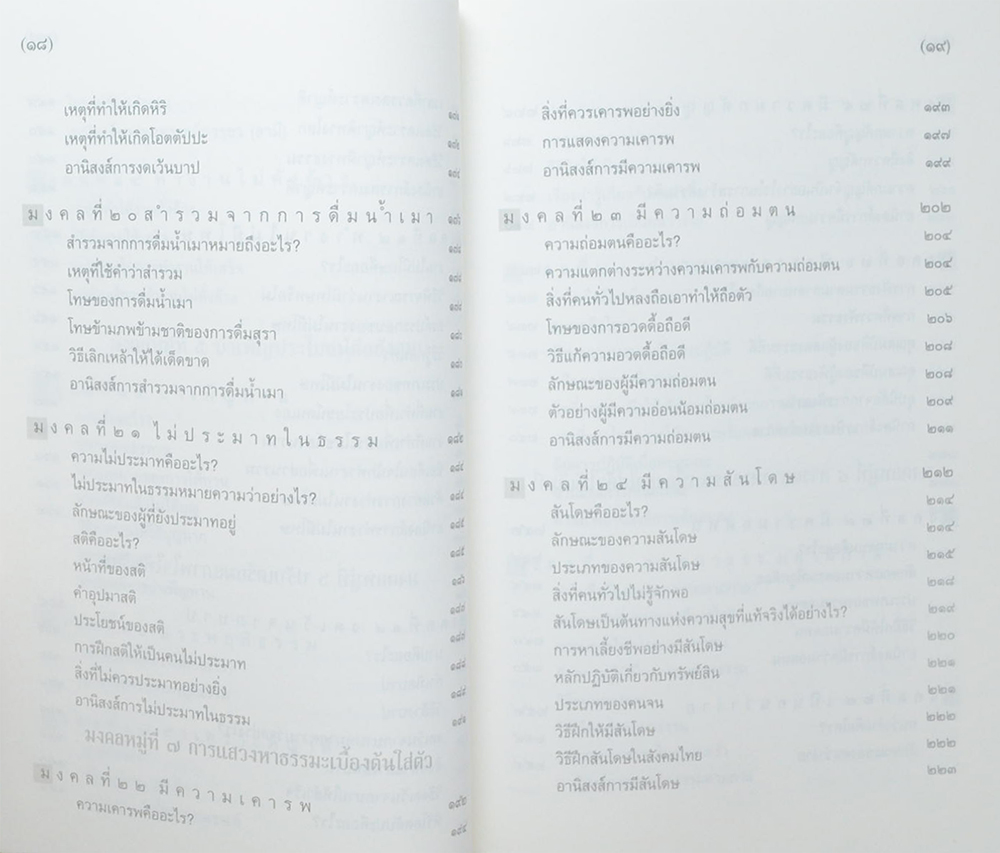 (๑๘)
เหตุที่ทำให้เกิดหิริ
เหตุที่ทำให้เกิดโอตตัปปะ
อานิสงส์การงดเว้นบาป
มงคลที่ ๒๐ สำรวมจากการดื่มน้ำเมา
สำรวมจากการดื่มน้ำเมาหมายถึงอะไร?
เหตุที่ใช้คำว่าสำรวม
โทษของการดื่มน้ำเมา
โทษข้ามภพข้ามชาติของการดื่มสุรา
วิธีเลิกเหล้าให้ได้เด็ดขาด
อานิสงส์การสำรวมจากการดื่มน้ำเมา
มงคลที่ ๒๑ ไม่ประมาทในธรรม
ความไม่ประมาทคืออะไร?
ไม่ประมาทในธรรมหมายความว่าอย่างไร?
ลักษณะของผู้ที่ยังประมาทอยู่
สติคืออะไร?
หน้าที่ของสติ
คำอุปมาสติ
ประโยชน์ของสติ
การฝึกสติให้เป็นคนไม่ประมาท
สิ่งที่ไม่ควรประมาทอย่างยิ่ง
อานิสงส์การไม่ประมาทในธรรม
มงคลหมู่ที่ ๗ การแสวงหาธรรมะเบื้องต้นใส่ตัว
มงคลที่ ๒๒ มีความเคารพ ๑๙๒
ความเคารพคืออะไร? ๑๙๔
(๑๙)
สิ่งที่ควรเคารพอย่างยิ่ง ๑๙๓
การแสดงความเคารพ ๑๙๗
อานิสงส์การมีความเคารพ ๑๙๙
มงคลที่ ๒๓ มีความถ่อมตน ๒๐๒
ความถ่อมตนคืออะไร? ๒๐๔
ความแตกต่างระหว่างความเคารพกับความถ่อมตน ๒๐๔
สิ่งที่คนทั่วไปหลงถือเอาทำให้ถือตัว ๒๐๕
โทษของการอวดดื้อถือดี ๒๐๖
วิธีแก้ความอวดดื้อถือดี ๒๐๘
ลักษณะของผู้มีความถ่อมตน ๒๐๘
ตัวอย่างผู้มีความอ่อนน้อมถ่อมตน ๒๐๙
อานิสงส์การมีความถ่อมตน ๒๑๑
มงคลที่ ๒๔ มีความสันโดษ ๒๑๒
สันโดษคืออะไร? ๒๑๔
ลักษณะของความสันโดษ ๒๑๔
ประเภทของความสันโดษ ๒๑๕
สิ่งที่คนทั่วไปไม่รู้จักพอ ๒๑๘
สันโดษเป็นต้นทางแห่งความสุขที่แท้จริงได้อย่างไร? ๒๑๙
การหาเลี้ยงชีพอย่างมีสันโดษ ๒๒๐
หลักปฏิบัติเกี่ยวกับทรัพย์สิน ๒๒๑
ประเภทของคนจน ๒๒๑
วิธีฝึกให้มีสันโดษ ๒๒๒
วิธีฝึกสันโดษในสังคมไทย ๒๒๒
อานิสงส์การมีสันโดษ ๒๒๓